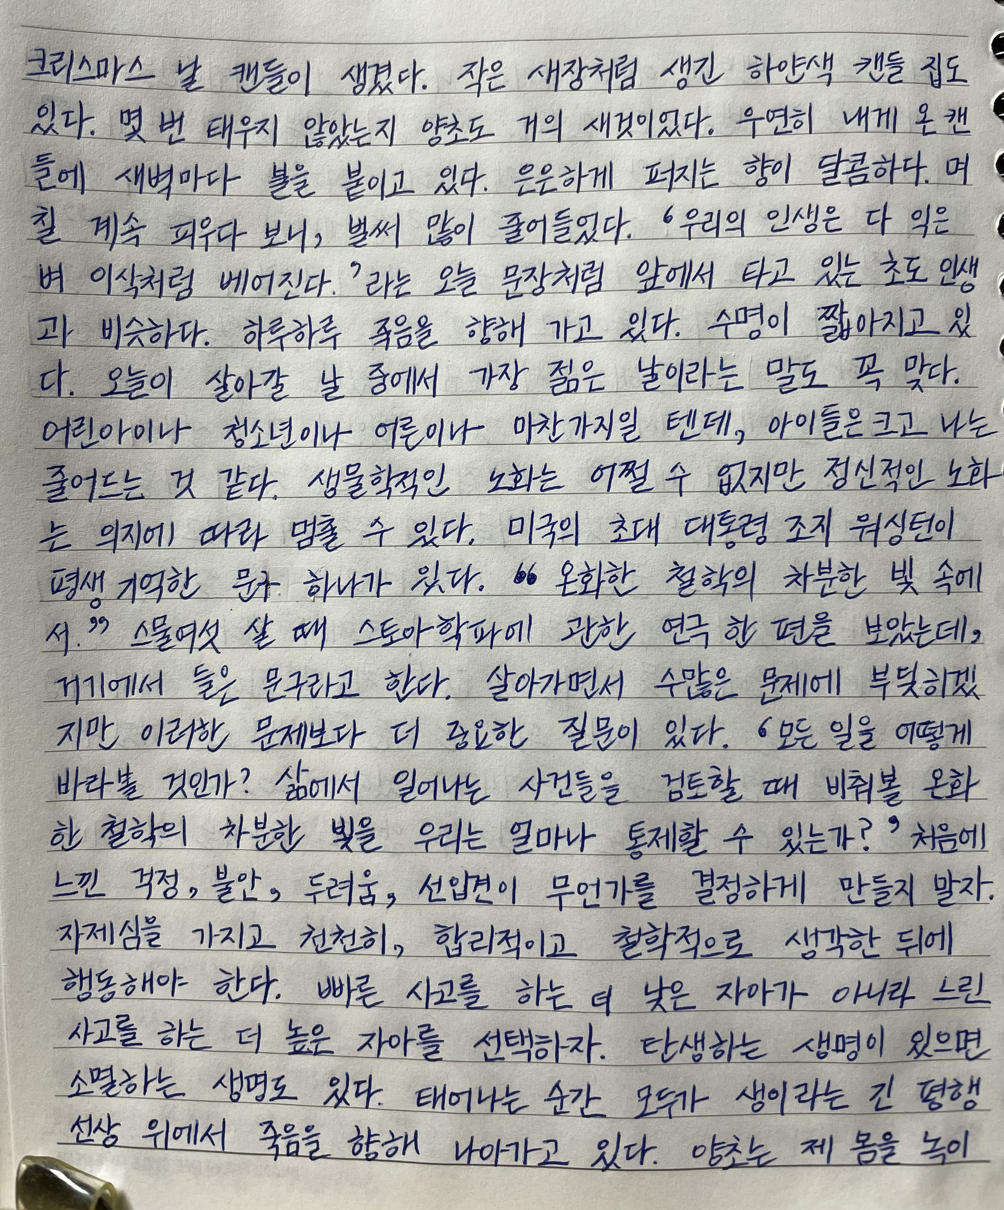 크리스마스 날 캔들이 생겼다. 작은 새장처럼 생긴 하얀색 캔들 집도
있다. 몇 번 태우지 않았는지 양초도 거의 새것이었다. 우연히 내게 온 캔
들에 새벽마다 불을 붙이고 있다. 은은하게 퍼지는 향이 달콤하다. 며
칠 계속 피우다 보니, 벌써 많이 줄어들었다. '우리의 인생은 다 익은
벼 이삭처럼 베어진다.'라는 오늘 문장처럼 앞에서 타고 있는 초도 인생
과 비슷하다. 하루하루 죽음을 향해 가고 있다. 수명이 짧아지고 있
다. 오늘이 살아갈 날 중에서 가장 젊은 날이라는 말도 꼭 맞다.
어린아이나 청소년이나 어른이나 마찬가지일 텐데, 아이들은 크고 나는
줄어드는 것 같다. 생물학적인 노화는 어쩔 수 없지만 정신적인 노화
는 의지에 따라 멈출 수 있다. 미국의 초대 대통령 조지 워싱턴이
평생 기억한 문구 하나가 있다. "온화한 철학의 차분한 빛 속에
서." 스물여섯 살 때 스토아학파에 관한 연극 한 편을 보았는데,
거기에서 들은 문구라고 한다. 살아가면서 수많은 문제에 부딪히겠
지만 이러한 문제보다 더 중요한 질문이 있다. '모든 일을 어떻게
바라볼 것인가? 삶에서 일어나는 사건들을 검토할 때 비춰볼 온화
한 철학의 차분한 빛을 우리는 얼마나 통제할 수 있는가?' 처음에
느낀 걱정, 불안, 두려움, 선입견이 무언가를 결정하게 만들지 말자.
자제심을 가지고 천천히, 합리적이고 철학적으로 생각한 뒤에
행동해야 한다. 빠른 사고를 하는 더 낮은 자아가 아니라 느린
사고를 하는 더 높은 자아를 선택하자. 탄생하는 생명이 있으면
소멸하는 생명도 있다. 태어나는 순간 모두가 생이라는 긴 평행
선상 위에서 죽음을 향해 나아가고 있다. 양초는 제 몸을 녹이